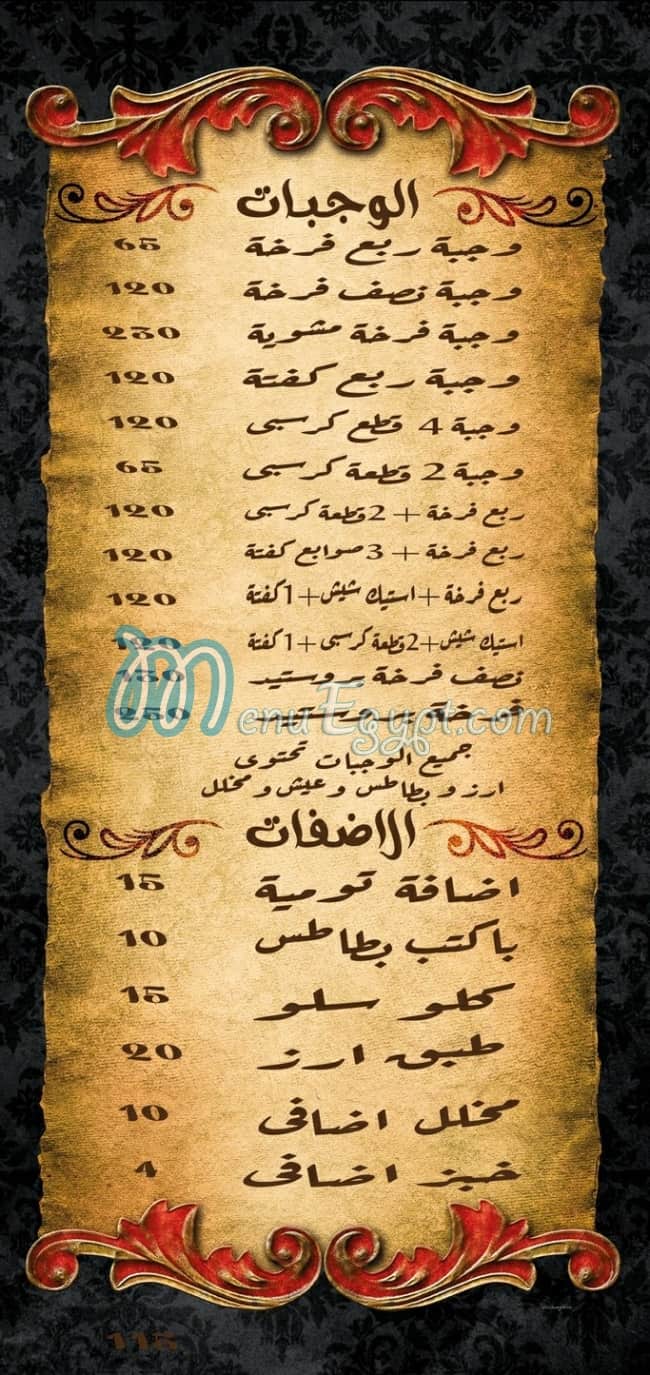 الوجبات
وجبة ربع فرخة 65
وجبة نصف فرخة 120
وجبة فرخة مشوية 230
وجبة ربع كفتة 120
وجبة 4 قطع كرسبى 120
وجبة 2 قطعة كرسبى 65
ربع فرخة + 2 قطعة كرسبى 120
ربع فرخة + 3 صوابع كفتة 120
ربع فرخة + استيك شيش + 1 كفتة 120
استيك شيش + 2 قطعة كرسبى + 1 كفتة 120
نصف فرخة بروستيد 130
فرخة بروستيد 250
MenuEgypt.com
جميع الوجبات تحتوى
ارز و بطاطس و عيش و مخلل
الاضفات
اضافة تومية 15
باكتب بطاطس 10
كلو سلو 15
طبق ارز 20
مخلل اضافى 10
خبز اضافى 4
115